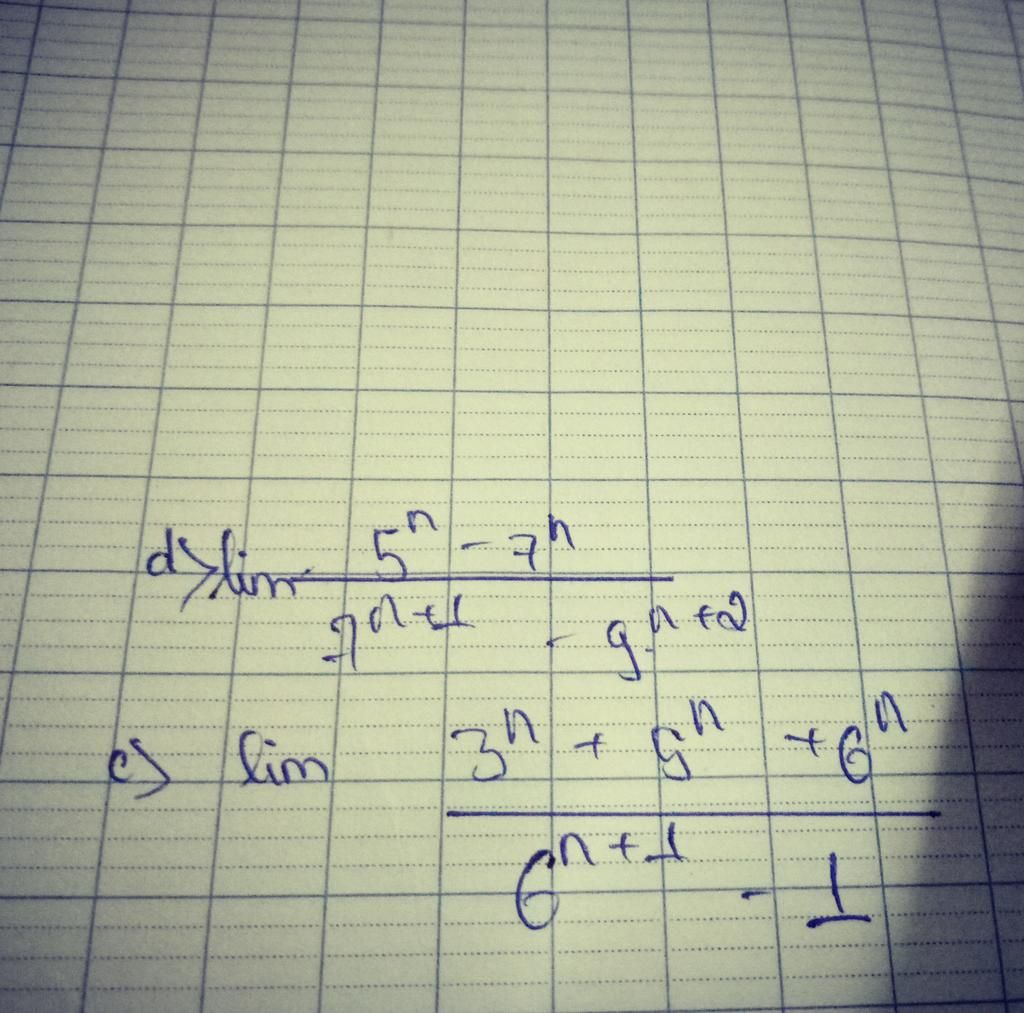 d> lim (5ⁿ - 7ⁿ) / (7ⁿ⁺¹ - 9ⁿ⁺²)
e) lim (3ⁿ + 5ⁿ + 6ⁿ) / (6ⁿ⁺¹ - 1)